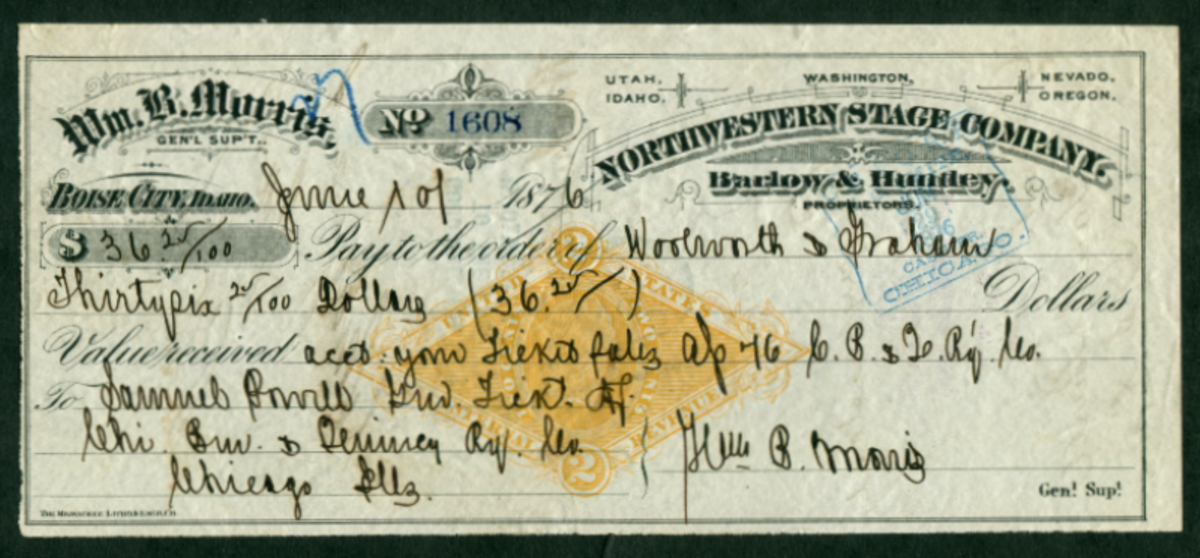 Wm. B. Morris,
GEN'L SUP'T.
No 1608
UTAH, WASHINGTON, NEVADA,
IDAHO, OREGON,
NORTHWESTERN STAGE COMPANY,
Barlow & Huntley,
PROPRIETORS.
BOISE CITY, IDAHO. June 1st 1876
$ 36.25/100 Pay to the order of Woolworth & Graham
Thirtysix 25/100 Dollars (36.25/) Dollars
Value received acct. your Ticket Sales Ap 76 C. B. & Q. Ry. Co.
To Samuel Powell Genl. Tickt. Agt.
Chi. Bur. & Quincy Ry. Co.
Chicago Ills.
Wm B. Morris
Genl Supt
2
UNITED STATES
INTERNAL REVENUE
2
CHICAGO.